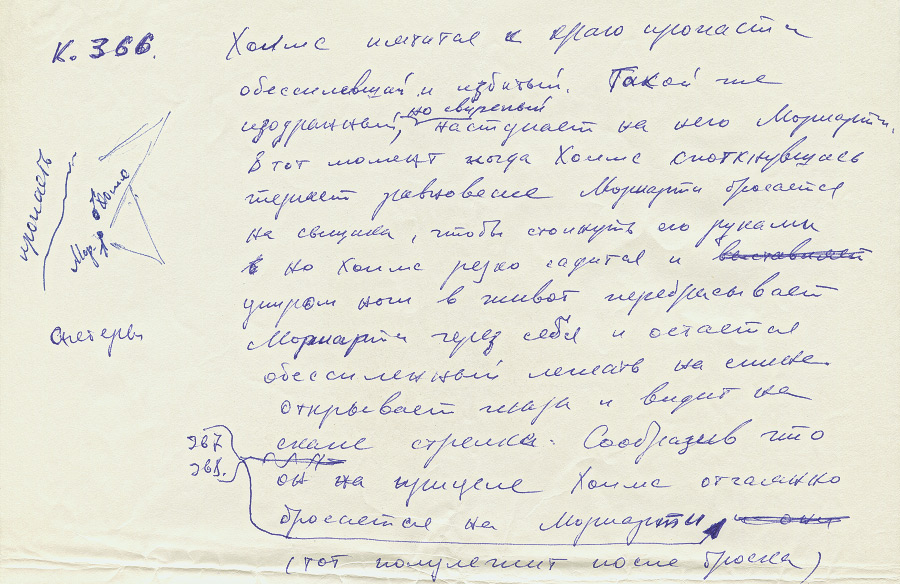 К. 366.
Холмс пятится к краю пропасти
обессилевший и избитый. Такой же
но свирепый
изодранный, наступает на него Мориарти.
В тот момент когда Холмс споткнувшись
теряет равновесие Мориарти бросается
на сыщика, чтобы столкнуть его руками
но Холмс резко садится и выставляет
упором ноги в живот перебрасывает
Мориарти через себя и остается
обессиленный лежать на спине
открывает глаза и видит на
скале стрелка. Сообразив что
он на прицеле Холмс отчаянно
бросается на Мориарти, и они
(тот полулежит после броска)
пропасть
Холмс
Мор.
Статеры
367
368.